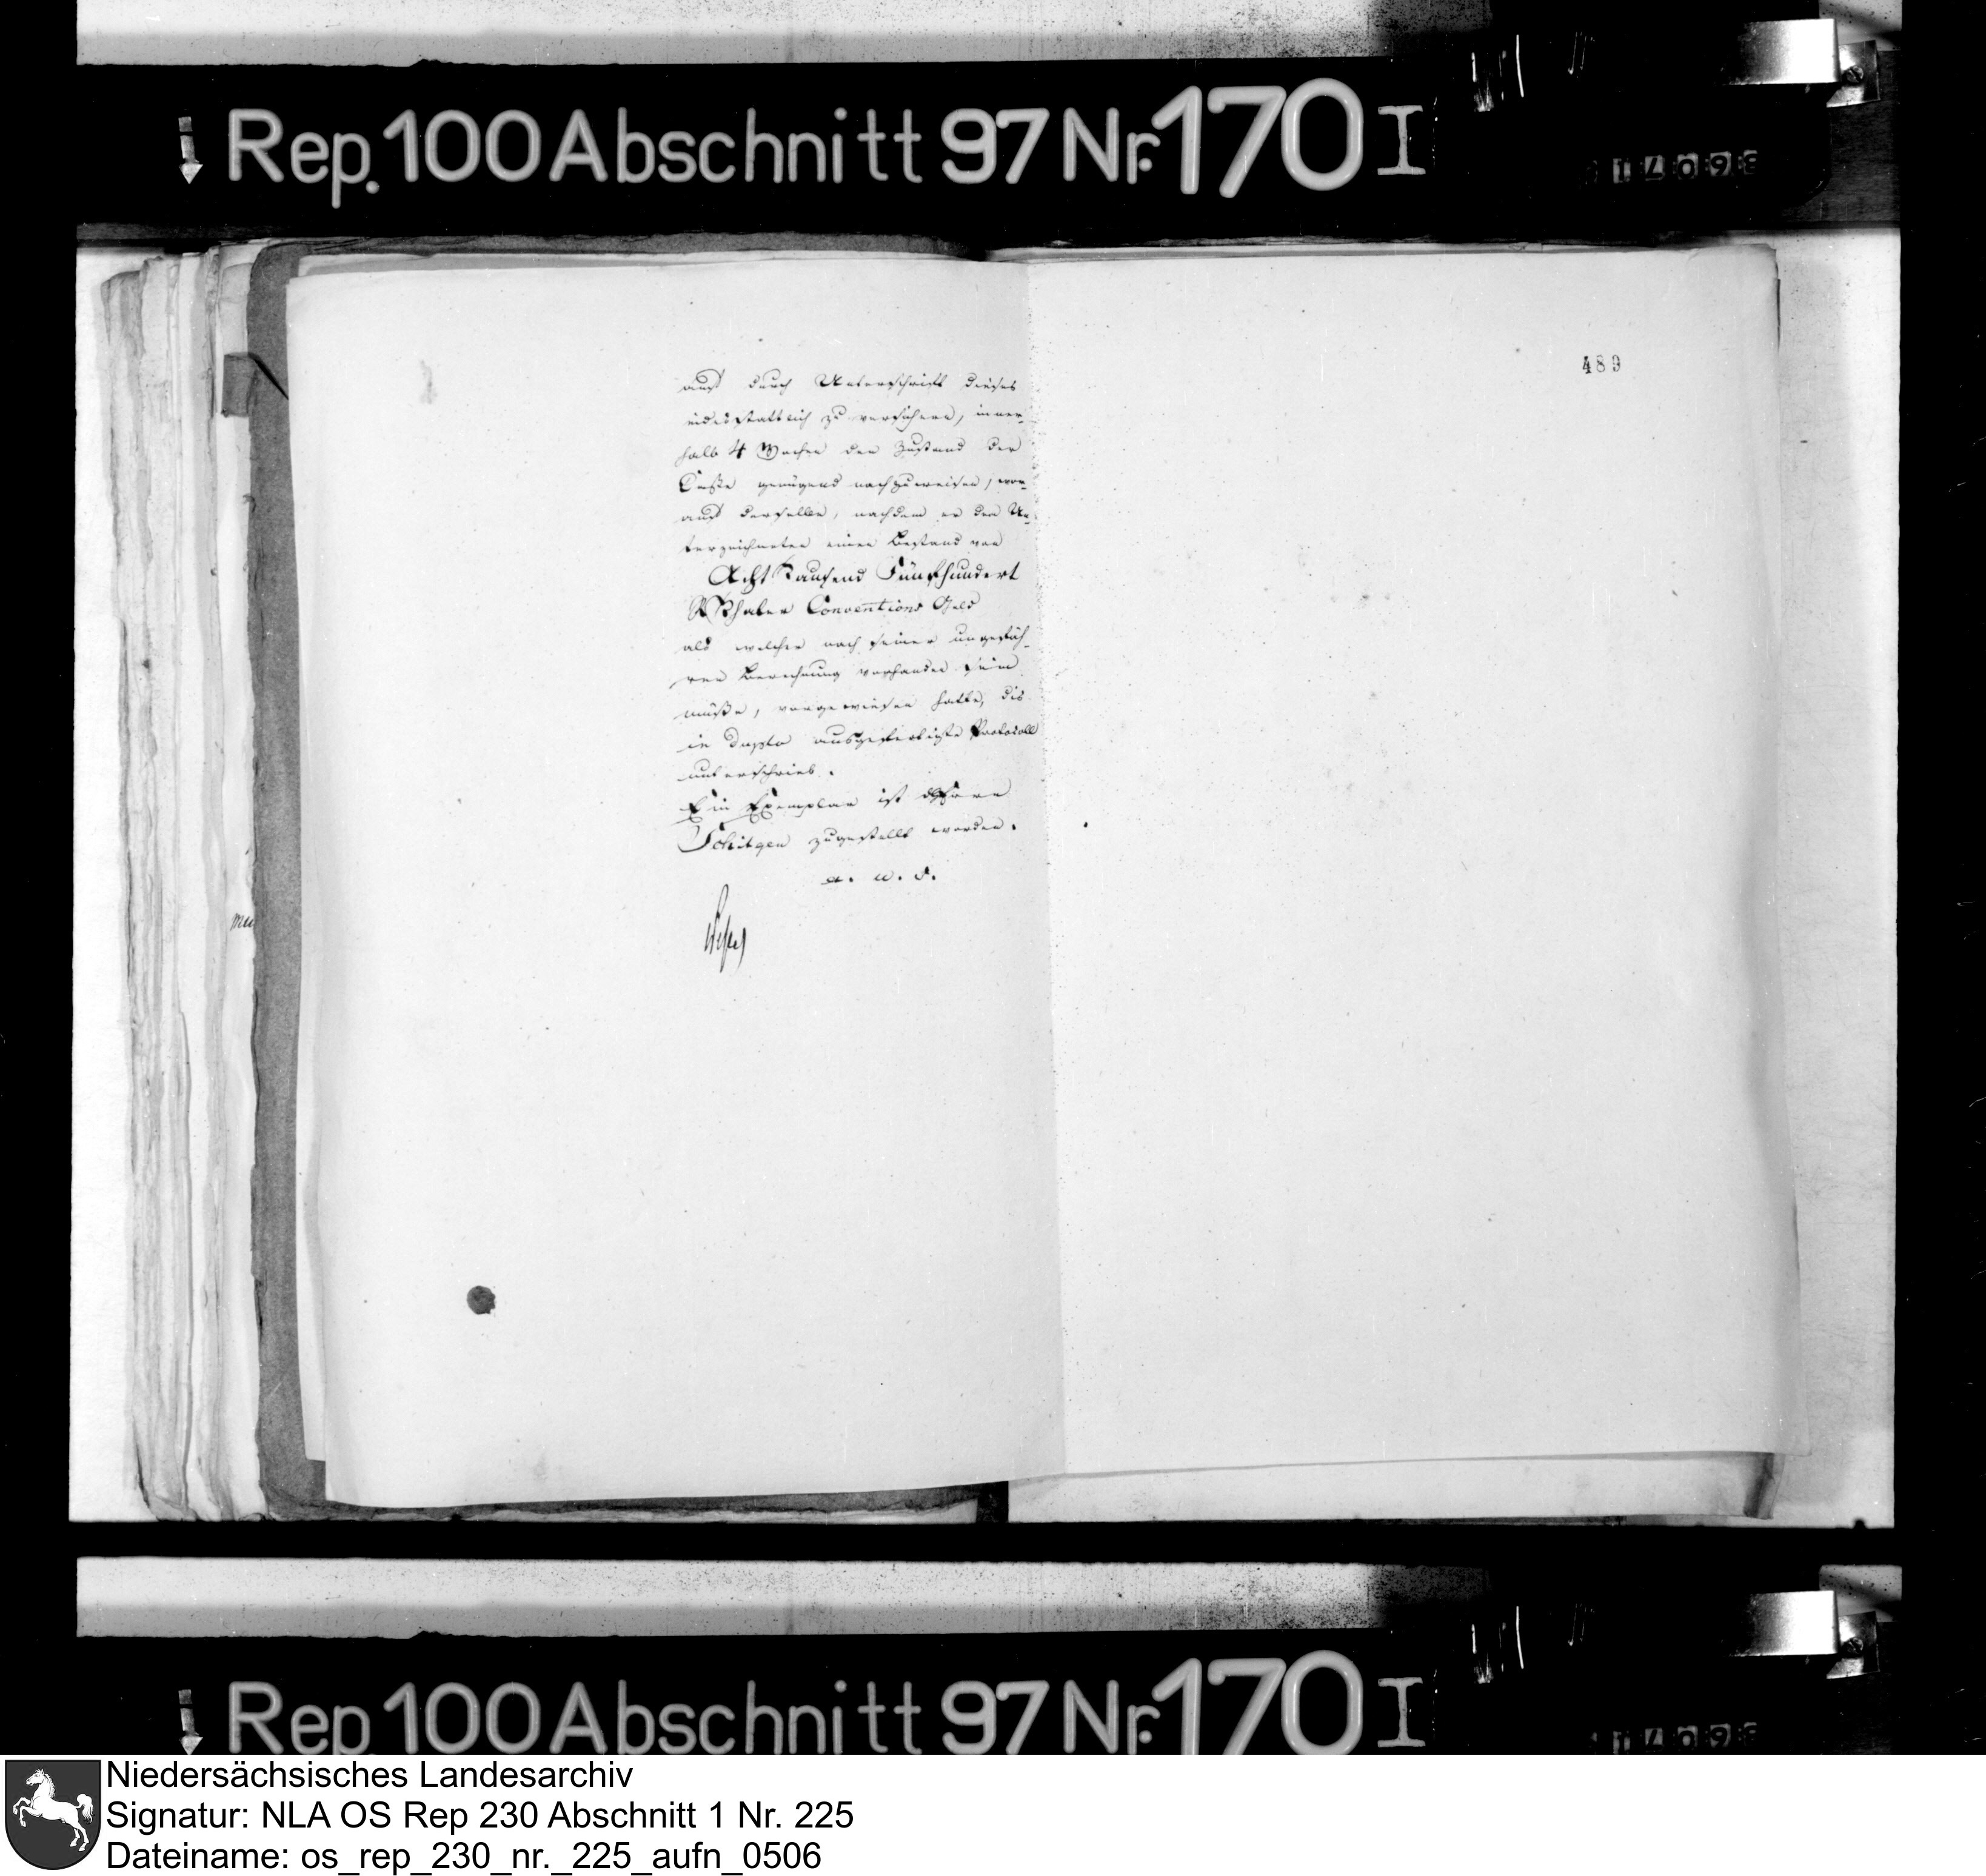 Rep. 100 Abschnitt 97 Nr. 170 I
489
auf durch Unterschrift dieses
eidesstattlich zu versichern, inner-
halb 4 Wochen den Zustand der
Casse genügend nachzuweisen, wor-
auf derselbe, nachdem er den Un-
terzeichneten einen Bestand von
Acht Tausend Fünfhundert
Rthaler Conventions Geld
als welcher nach seiner ungefäh-
ren Berechnung vorhanden sein
müße, vorgewiesen hatte, dis
in duplo ausgefertigte Protocoll
unterschrieb.
Ein Exemplar ist Herrn
zugestellt worden.
a. u. s.
Rep 100 Abschnitt 97 Nr. 170 I
Niedersächsisches Landesarchiv
Signatur: NLA OS Rep 230 Abschnitt 1 Nr. 225
Dateiname: os_rep_230_nr._225_aufn_0506